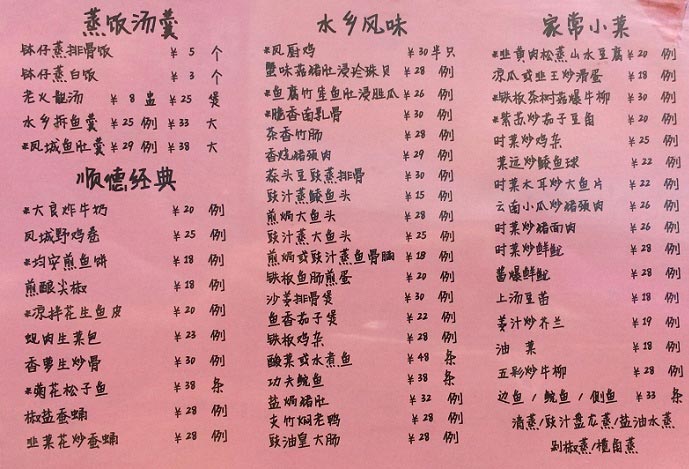 蒸饭汤羹
钵仔蒸排骨饭 ¥5 个
钵仔蒸白饭 ¥3 个
老火靓汤 ¥8 盅 ¥25 煲
水乡拆鱼羹 ¥25 例 ¥33 大
*凤城鱼肚羹 ¥29 例 ¥38 大
顺德经典
*大良炸牛奶 ¥20 例
凤城野鸡卷 ¥25 例
*均安煎鱼饼 ¥18 例
煎酿尖椒 ¥18 例
*凉拌花生鱼皮 ¥20 例
蚬肉生菜包 ¥23 例
香萝生炒骨 ¥30 例
*菊花松子鱼 ¥38 条
椒盐蚕蛹 ¥28 例
韭菜花炒蚕蛹 ¥28 例
水乡风味
*风厨鸡 ¥30 半只
蟹味菇猪肚浸珍珠贝 ¥28 例
*鱼腐竹笙鱼肚浸胜瓜 ¥26 例
*脆香南乳骨 ¥30 例
茶香竹肠 ¥28 例
香烧猪颈肉 ¥29 例
蒜头豆豉蒸排骨 ¥30 例
豉汁蒸鲮鱼头 ¥15 例
煎焗大鱼头 ¥28 例
豉汁蒸大鱼头 ¥25 例
煎焗或豉汁蒸鱼骨腩 ¥18 例
铁板鱼肠煎蛋 ¥20 例
沙姜排骨煲 ¥30 例
鱼香茄子煲 ¥22 例
铁板鸡杂 ¥28 例
酸菜或水煮鱼 ¥48 条
功夫鲩鱼 ¥38 条
盐焗猪肚 ¥32 例
支竹焖老鸭 ¥28 例
豉油皇大肠 ¥28 例
家常小菜
*韭黄肉松蒸山水豆腐 ¥20 例
凉瓜或韭王炒滑蛋 ¥18 例
*铁板茶树菇爆牛柳 ¥30 例
*紫苏炒茄子豆角 ¥20 例
时菜炒鸡杂 ¥25 例
菜远炒鲮鱼球 ¥22 例
时菜木耳炒大鱼片 ¥22 例
云南小瓜炒猪颈肉 ¥26 例
时菜炒猪面肉 ¥26 例
时菜炒鲜鱿 ¥28 例
酱爆鲜鱿 ¥28 例
上汤豆苗 ¥18 例
姜汁炒芥兰 ¥19 例
油菜 ¥18 例
五彩炒牛柳 ¥28 例
边鱼/鲩鱼/侧鱼 ¥33 条
清蒸/豉汁盘龙蒸/盐油水蒸
剁椒蒸/榄角蒸